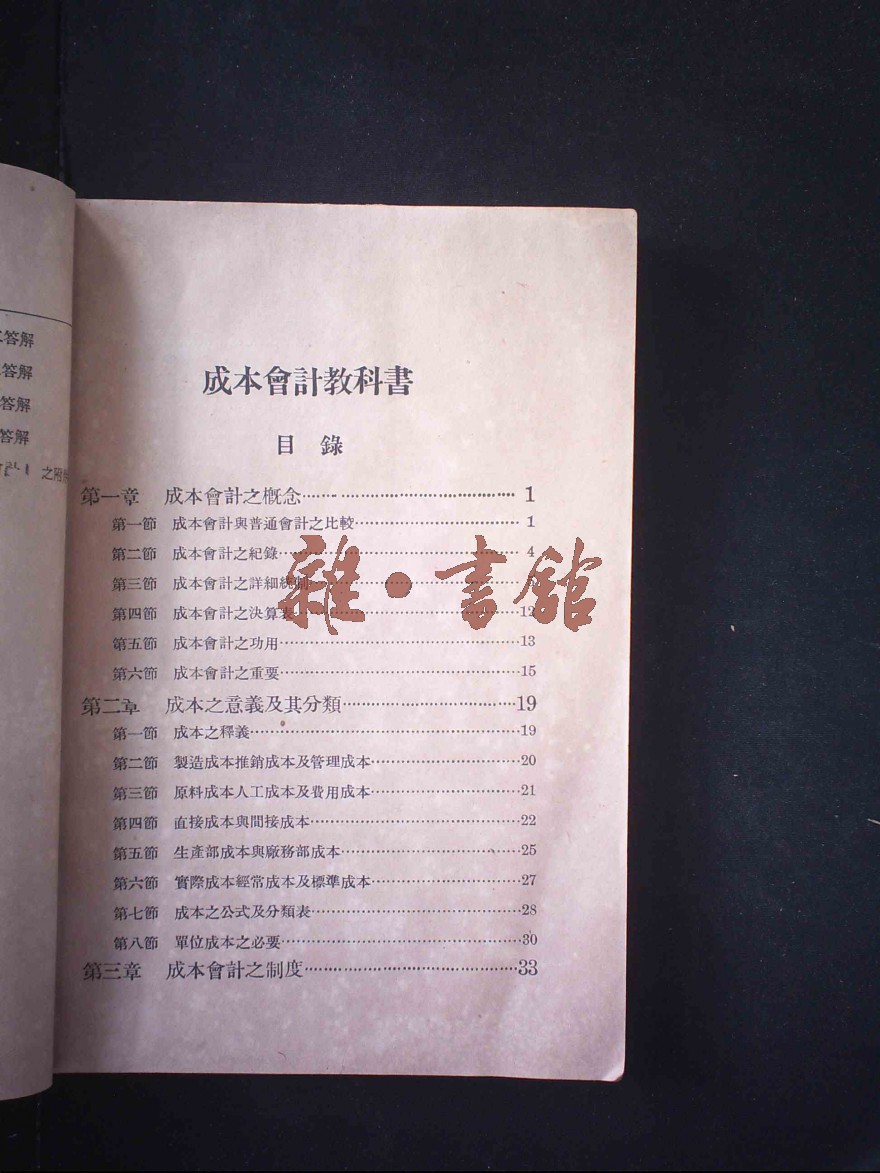 答解
答解
答解
答解
成本會計教科書
目錄
第一章 成本會計之概念 1
第一節 成本會計與普通會計之比較 1
第二節 成本會計之紀錄 4
第三節 成本會計之詳細統制
第四節 成本會計之決算表 12
第五節 成本會計之功用 13
第六節 成本會計之重要 15
第二章 成本之意義及其分類 19
第一節 成本之釋義 19
第二節 製造成本推銷成本及管理成本 20
第三節 原料成本人工成本及費用成本 21
第四節 直接成本與間接成本 22
第五節 生產部成本與廠務部成本 25
第六節 實際成本經常成本及標準成本 27
第七節 成本之公式及分類表 28
第八節 單位成本之必要 30
第三章 成本會計之制度 33
雜·書館